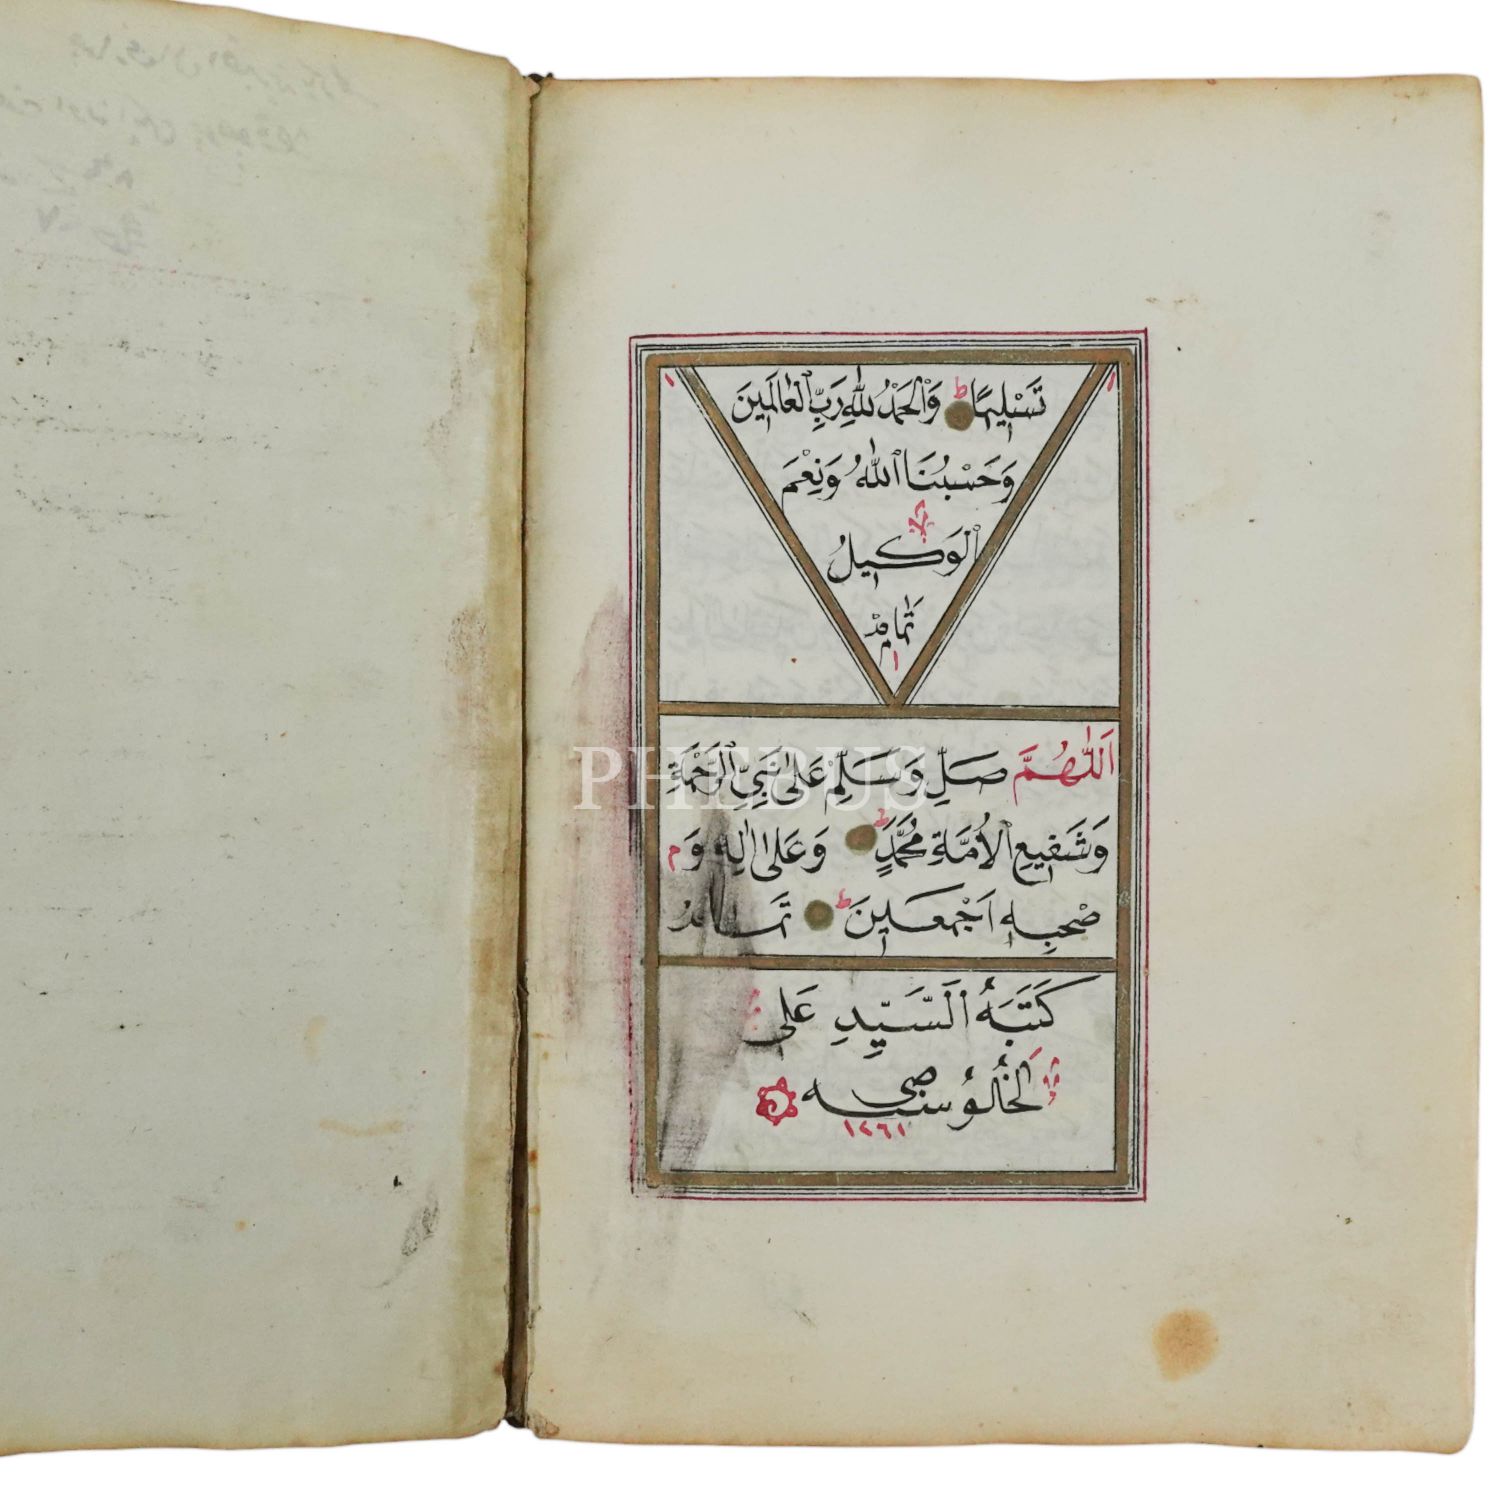 تَسْلِيمًا ط وَالْحَمْدُ لِلّٰهِ رَبِّ الْعَالَمِينَ
وَحَسْبُنَا اللّٰهُ وَنِعْمَ
الْوَكِيلُ
تمام
اَللّٰهُمَّ صَلِّ وَسَلِّمْ عَلٰى نَبِيِّ الرَّحْمَةِ
وَشَفِيعِ الْاُمَّةِ مُحَمَّدٍ ط وَعَلٰى اٰلِهٖ وَ م
صَحْبِهٖ اَجْمَعِينَ ط
كَتَبَهُ السَّيِّدِ عَلى
الخُلُوصِى سنه
١٢٦١
PHEBUS